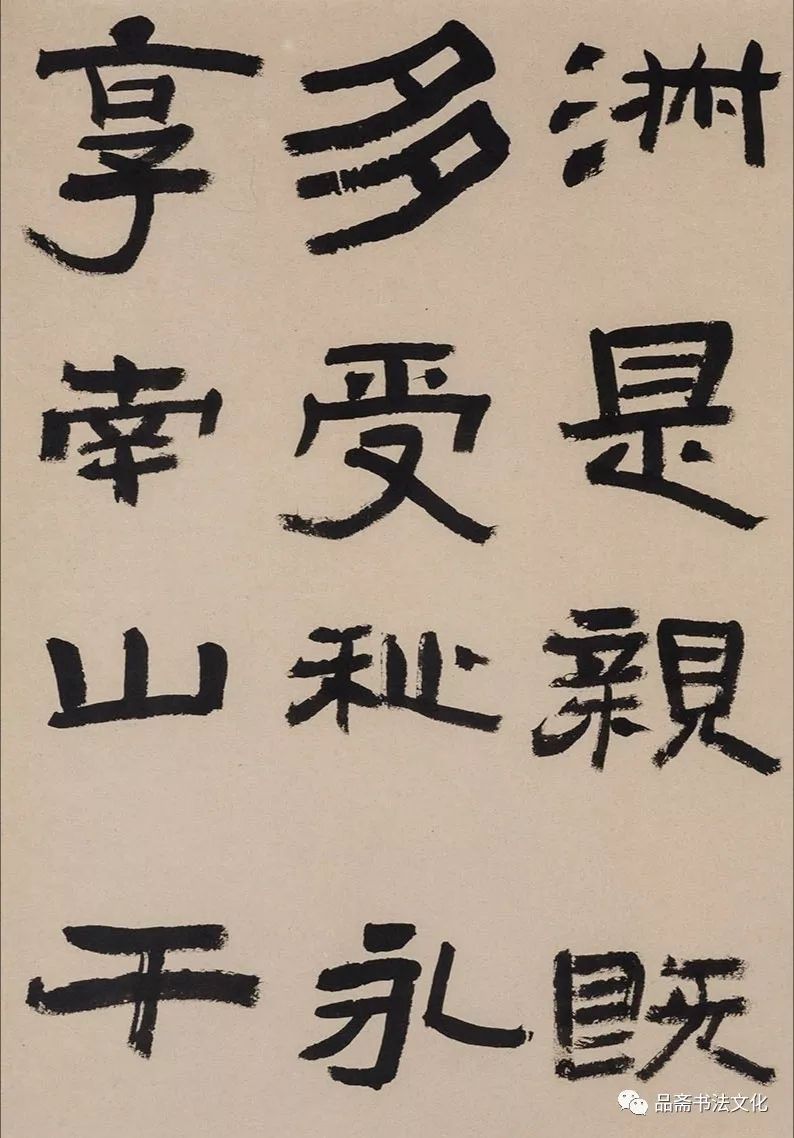 渊是親既
多受祉永
享南山干
品斋书法文化